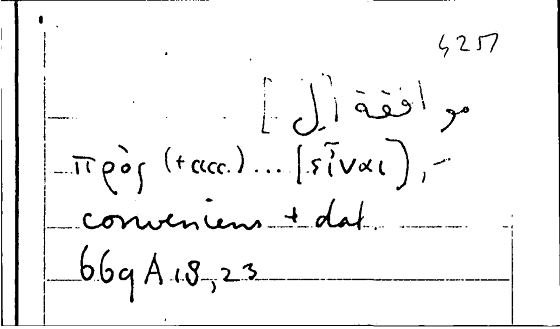 موافقة [ل]
πρὸς (+acc.)... [εἶναι], –
conveniens + dat.
669 A 18, 23